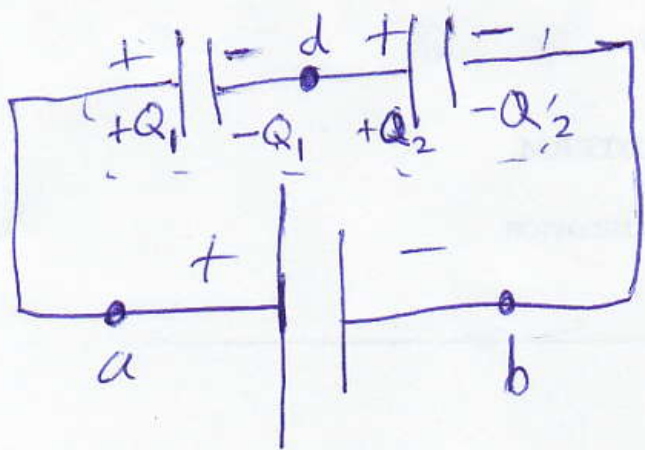 + - d + -
+Q₁ -Q₁ +Q₂ -Q₂
+ -
a b